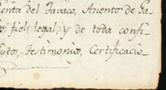 enta del Tavaco, Aviento de Sa-
o fiel, legal, y de toda confi-
Autos, Testimonios, Certificacio-